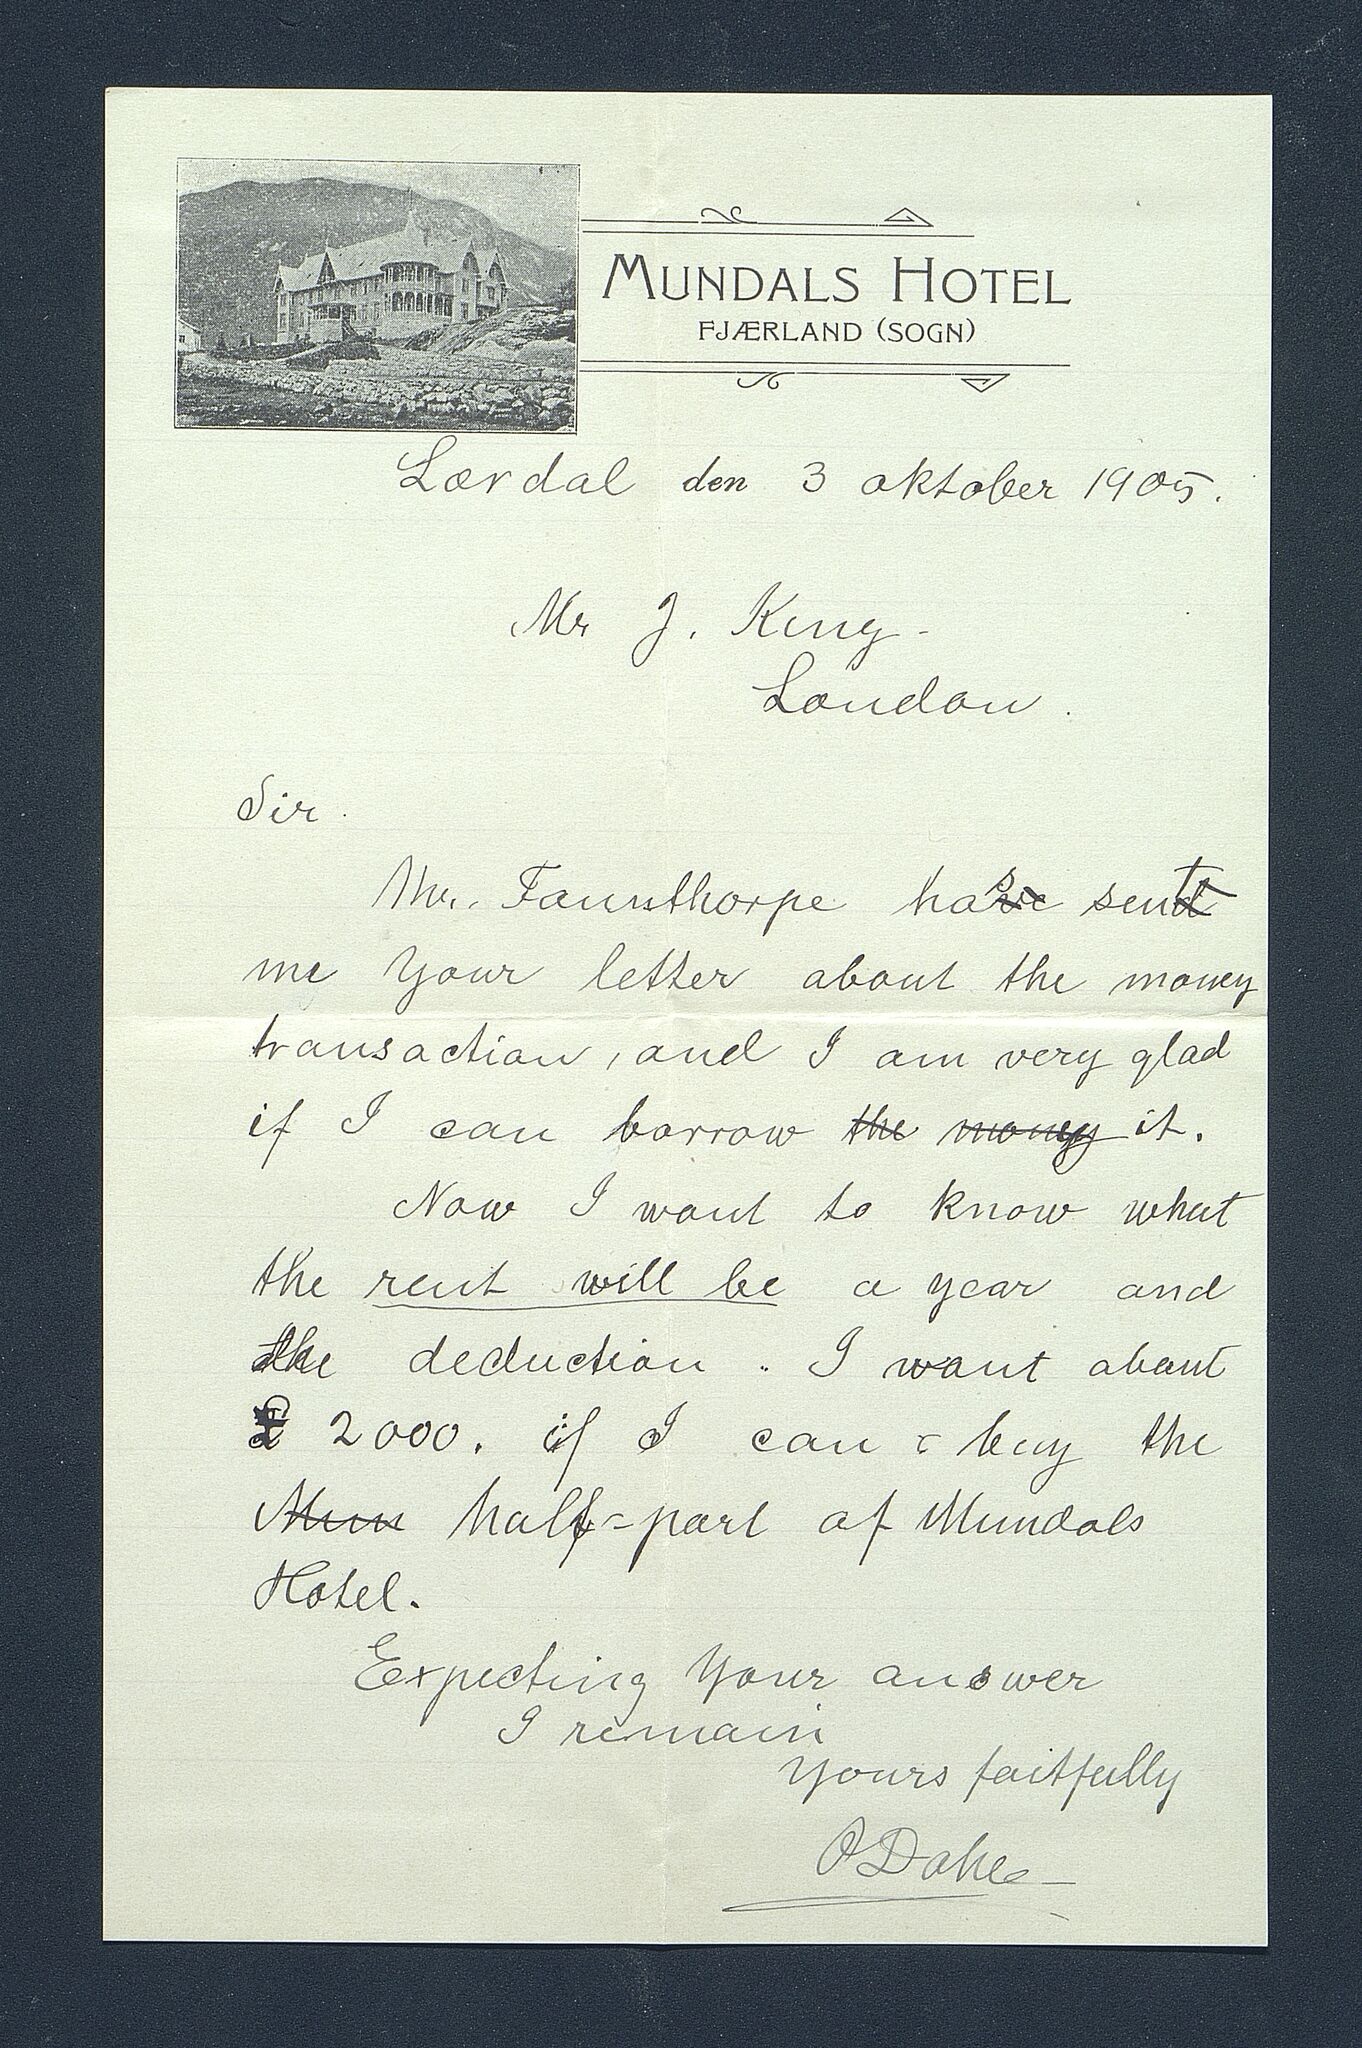 MUNDALS HOTEL
FJÆRLAND (SOGN)
Lærdal den 3 oktober 1905.
Mr J. King
London.
Sir.
Mr. Faunthorpe has sent
me Your letter about the money
transaction, and I am very glad
if I can borrow the money it.
Now I want to know what
the rent will be a year and
the deduction. I want about
£ 2000. if I can buy the
Mun half-part of Mundals
Hotel.
Expecting Your answer
I remain
Yours faitfully